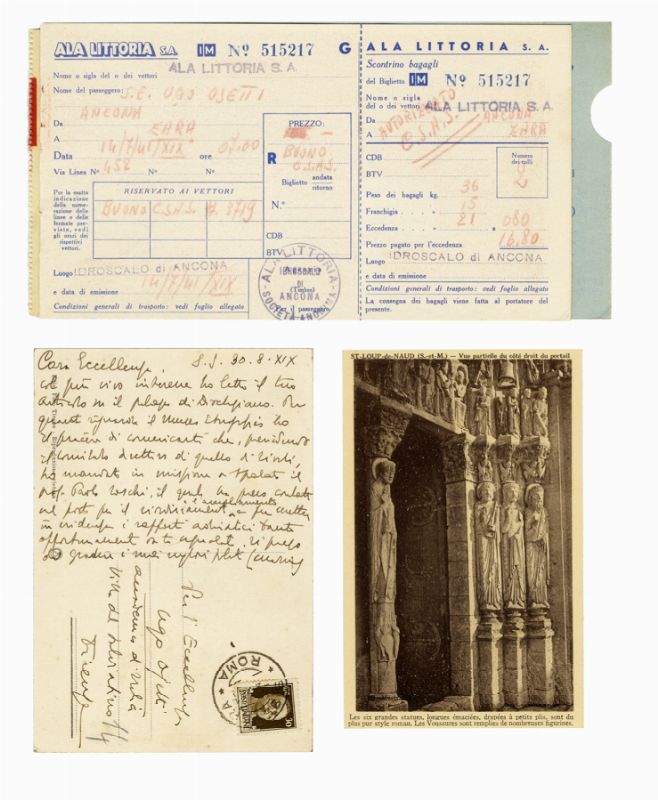 ALA LITTORIA S.A. IM Nº 515217 G
ALA LITTORIA S.A.
Nome o sigla del o dei vettori
Nome del passeggero: S.E. UGO OJETTI
Da ANCONA
A ZARA
Data 14/7/41/XIX ore 07.00
Via Linea Nº 452 Nº Nº
Per la esatta
indicazione
della nume-
razione delle
linee e delle
fermate pre-
viste, vedi
gli orari dei
rispettivi
vettori.
RISERVATO AI VETTORI
BUONO C.S.N.S. 3719
PREZZO:
R BUONO
C.S.N.S.
Biglietto andata
ritorno
N.º
CDB
BTV
Luogo IDROSCALO di ANCONA
e data di emissione 14/7/41/XIX
ALA LITTORIA
SOCIETÀ ANONIMA
IDROSCALO
DI
ANCONA
(Timbro)
Per il passeggero
Condizioni generali di trasporto: vedi foglio allegato
ALA LITTORIA S. A.
Scontrino bagagli
del Biglietto IM Nº 515217
Nome o sigla
del o dei vettori ALA LITTORIA S.A.
AUTORIZZATO
C.S.N.S.
ANCONA
ZARA
CDB
BTV
Numero
dei colli
2
Peso dei bagagli kg. 36
Franchigia 15
Eccedenza 21 080
Prezzo pagato per l'eccedenza 16.80
Luogo IDROSCALO di ANCONA
e data di emissione
Condizioni generali di trasporto: vedi foglio allegato
La consegna dei bagagli viene fatta al portatore del
presente.
Cara Eccellenza, S.S. 30.8.XIX
col più vivo interesse ho letto il tuo
articolo su il
quanto riguarda il Museo Etnografico ho
il piacere di comunicarti che, presiedendo
il comitato direttivo di quello di
ho mandato in missione a Spalato il
prof. Paolo Toschi, il quale ha preso contatto
sul posto per il riordinamento
in evidenza i rapporti adriatici tanto
opportunamente da te segnalati. Ti prego
di gradire i miei migliori saluti
Per l'Eccellenza
Ugo Ojetti
accademico d'Italia
Via del Salviatino
Firenze
ROMA
30
ST-LOUP-de-NAUD (S.-et-M.) — Vue partielle du côté droit du portail
Les six grandes statues, longues émaciées, drapées à petits plis, sont du
plus pur style roman. Les Voussures sont remplies de nombreuses figurines.